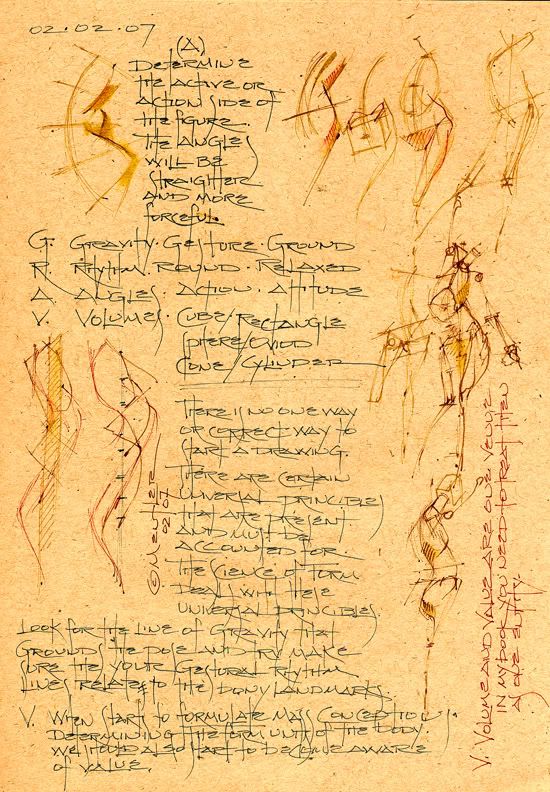 02.02.07
(A)
DETERMINE
THE ACTIVE OR
ACTION SIDE OF
THE FIGURE.
THE ANGLES
WILL BE
STRAIGHTER
AND MORE
FORCEFUL.
G. GRAVITY. GESTURE. GROUND
R. RHYTHM. ROUND. RELAXED
A. ANGLES. ACTION. ATTITUDE
V. VOLUMES. CUBE/RECTANGLE
SPHERE/OVIOD
CONE/CYLINDER
THERE IS NO ONE WAY
OR CORRECT WAY TO
START A DRAWING.
THERE ARE CERTAIN
UNIVERSAL PRINCIBLES
THAT ARE PRESENT
AND MUST BE
ACCOUNTED FOR.
THE SCIENCE OF FORM
DEALS WITH THESE
UNIVERSAL PRINCIBLES.
© MENTLER
02.07
LOOK FOR THE LINE OF GRAVITY THAT
GROUNDS THE POSE AND TRY MAKE
SURE THE YOUR GESTURAL RHYTHM
LINES RELATE TO THE BONY LANDMARKS.
V. WHEN START TO FORMULATE MASS CONCEPTIONS.
DETERMINING THE FORM UNITY OF THE BODY
WE SHOULD ALSO START TO BECOME AWARE
OF VALUE.
V: VOLUME AND VALUE ARE ONE VENUE
IN MY BOOK YOU NEED TO TREAT THEM
AS ONE ENTITY.